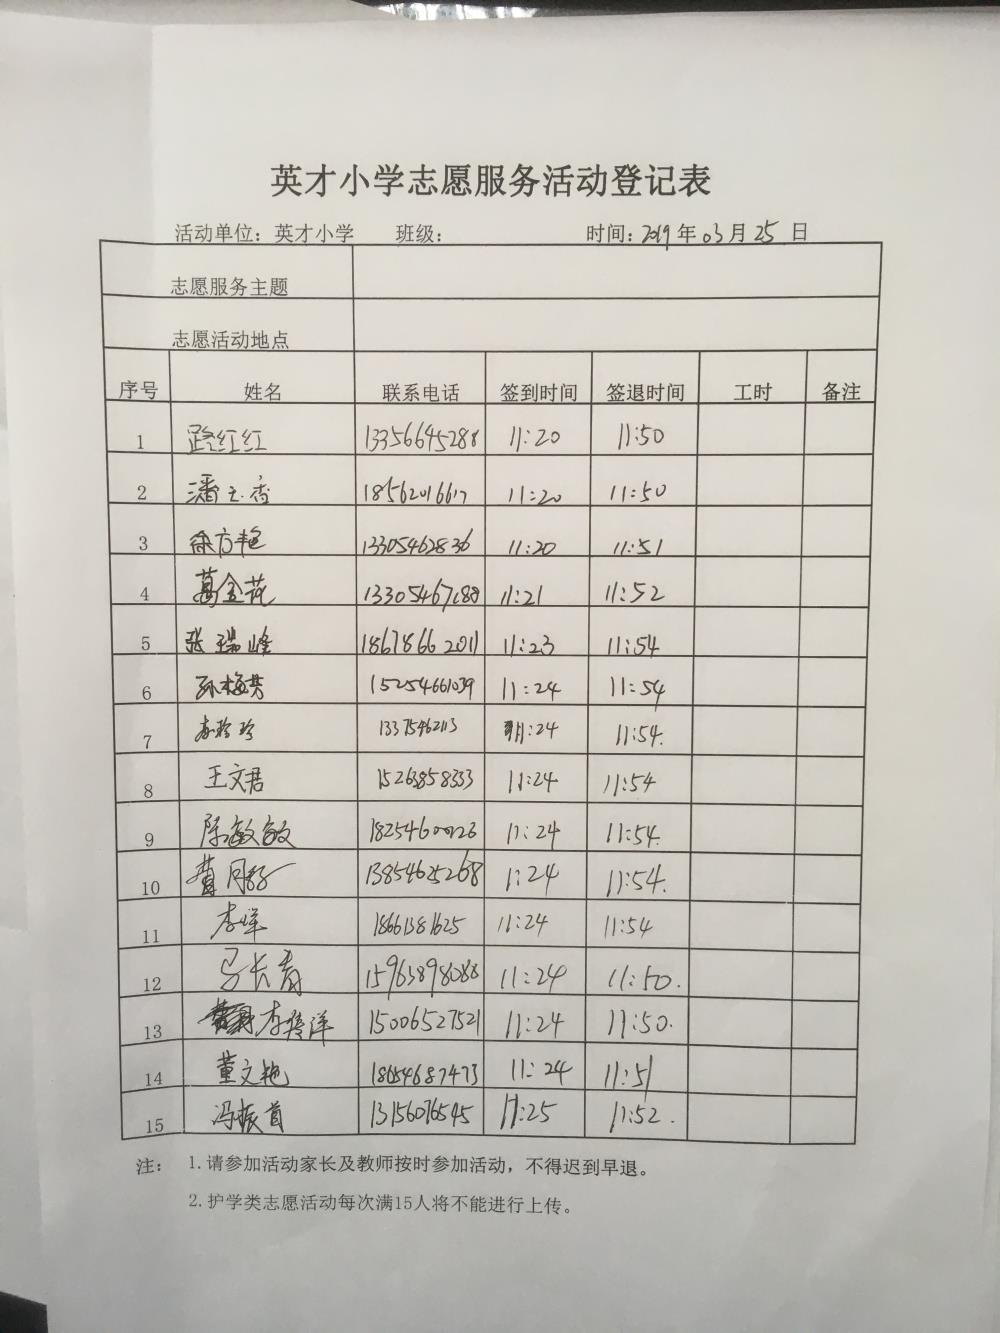 英才小学志愿服务活动登记表
活动单位：英才小学 班级： 时间：2019年03月25日
志愿服务主题
志愿活动地点
序号 姓名 联系电话 签到时间 签退时间 工时 备注
1 路红红 13356645288 11:20 11:50
2 潘玉香 18562016617 11:20 11:50
3 徐方艳 13305462836 11:20 11:51
4 葛金花 11:21 11:52
5 张瑞峰 18678662011 11:23 11:54
6 孙梅芳 15254661039 11:24 11:54
7 13375462113 11:24 11:54.
8 王文君 15263858333 11:24 11:54
9 陈敏敏 18254600126 11:24 11:54.
10 13854625268 11:24 11:54.
11 李洋 18661381625 11:24 11:54
12 马长青 15963898088 11:24 11:50.
13 15006527521 11:24 11:50.
14 董文艳 18654687473 11:24 11:51
15 冯振首 13156076545 11:25 11:52.
注： 1.请参加活动家长及教师按时参加活动，不得迟到早退。
2.护学类志愿活动每次满15人将不能进行上传。